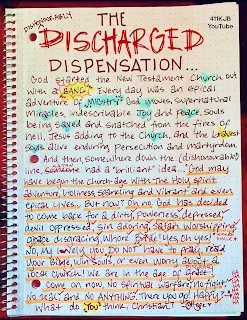 DISHONORABLY
THE
411KJB
YouTube
DISCHARGED
DISPENSATION...
God started the New Testament Church out
with a BANG! Every day was an epical
adventure of MIGHTY God moves, supernatural
miracles, indescribable joy and peace, souls
being saved and snatched from the fires of
hell, Jesus adding to the Church, and the bravest
souls alive enduring persecution and martyrdom.
And then, somewhere down the (dishonorable)
line, someone had a "brilliant" idea... "God may
have begun the church age with the Holy Spirit,
adventure, holiness, sparkling and vibrant and even
epical lives... But now? Oh no, God has decided
to come back for a dirty, powerless, depressed,
devil oppressed, sin adoring, Satan worshipping,
grace disgracing, whore Bride! Yes, oh yes!
No, no, you DO NOT have to pray, read
your Bible, win souls, or even worry about a
local church! We are in the age of Grace!
Come on now, no spiritual warfare, no fight,
no zeal, and NO ANYTHING. There you go! Happy?
What do YOU think, Christian?